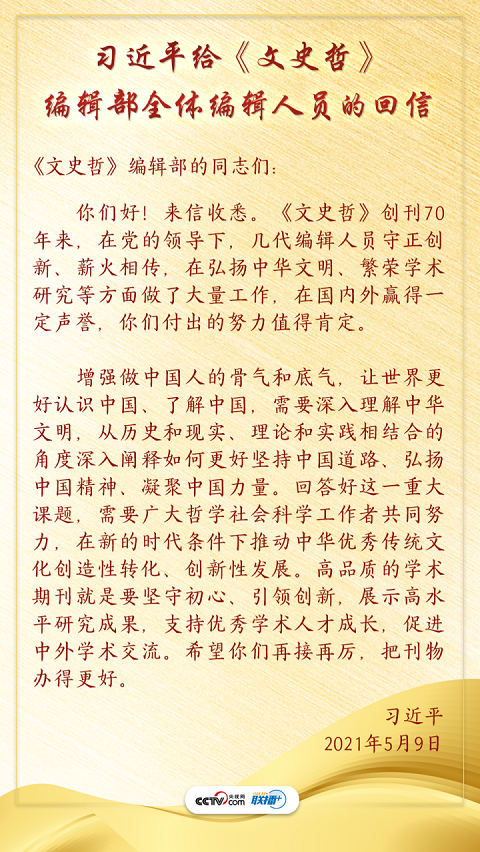 习近平给《文史哲》
编辑部全体编辑人员的回信
《文史哲》编辑部的同志们：
你们好！来信收悉。《文史哲》创刊70
年来，在党的领导下，几代编辑人员守正创
新、薪火相传，在弘扬中华文明、繁荣学术
研究等方面做了大量工作，在国内外赢得一
定声誉，你们付出的努力值得肯定。
增强做中国人的骨气和底气，让世界更
好认识中国、了解中国，需要深入理解中华
文明，从历史和现实、理论和实践相结合的
角度深入阐释如何更好坚持中国道路、弘扬
中国精神、凝聚中国力量。回答好这一重大
课题，需要广大哲学社会科学工作者共同努
力，在新的时代条件下推动中华优秀传统文
化创造性转化、创新性发展。高品质的学术
期刊就是要坚守初心、引领创新，展示高水
平研究成果，支持优秀学术人才成长，促进
中外学术交流。希望你们再接再厉，把刊物
办得更好。
习近平
2021年5月9日
CCTV 央视网 com 联播+